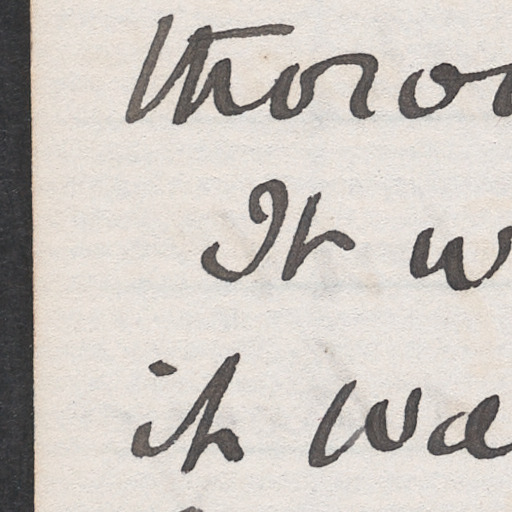 thoro
It w
it wa